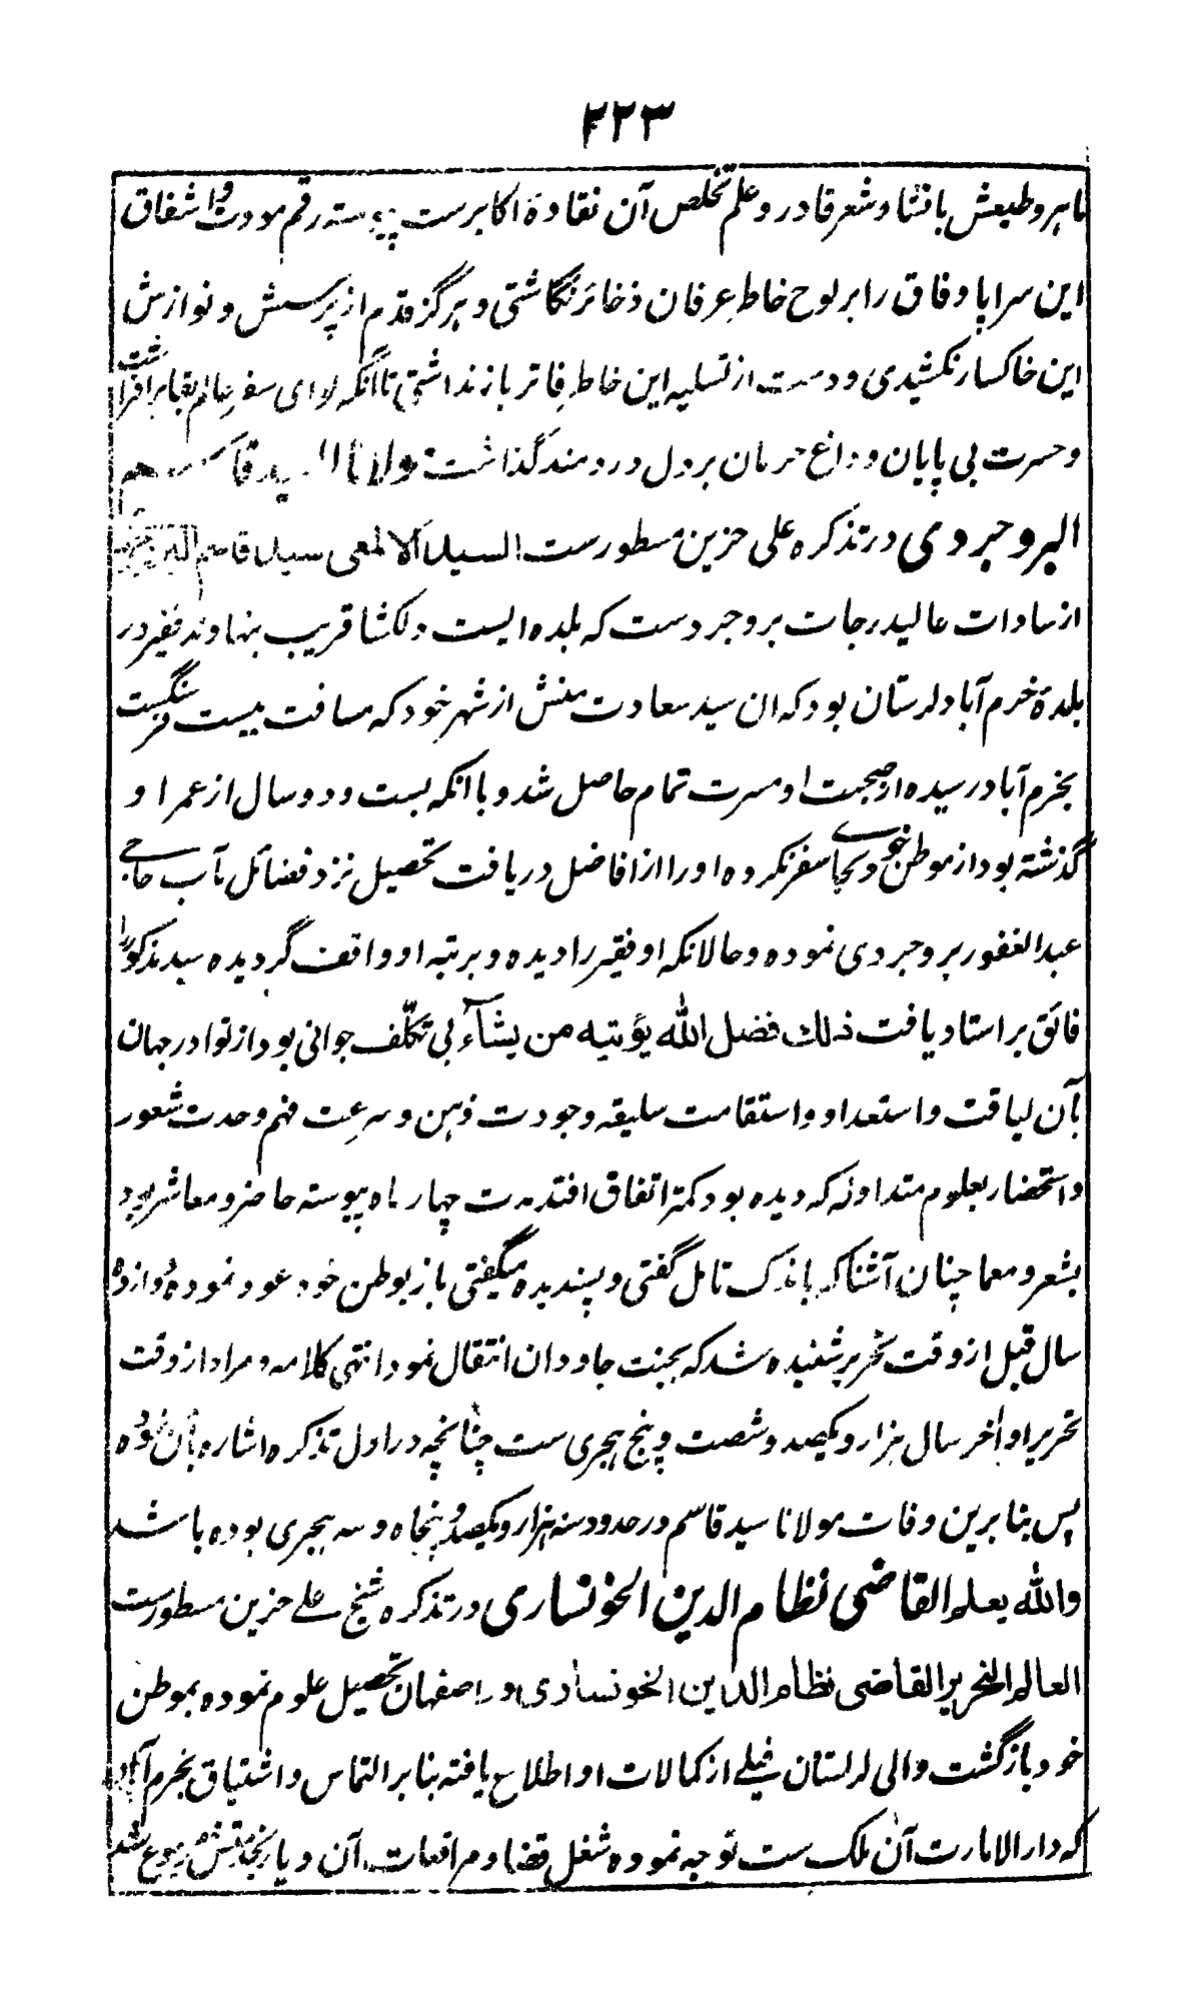 ۲۲۳
ماهر و طبعش بانشا و شعر قادر و علم تخلص آن نقادهٔ اکابرست پیوسته رقم مودت و اشفاق
این سراپا وفاق را بر لوح خاطر عرفان ذخائر نگاشتی و هرگز قدم از پرسش و نوازش
این خاکسار نکشیدی و دست از تسلیه این خاطر فاتر باز نداشتی تا آنکه لوای سفر عالم بقا برافراشت
و حسرت بی پایان و داغ حرمان بر دل دردمند گذاشت مولانا السید قاسم
البروجردی در تذکره علی حزین مسطورست السید الالمعی سید قاسم
از سادات عالیدرجات بروجردست که بلده ایست دلکشا قریب بنهاوند فقیر در
بلدهٔ خرم آباد لرستان بود که ان سید سعادت منش از شهر خود که مسافت بیست فرسنگست
بخرم آباد رسیده از صحبت او مسرت تمام حاصل شد و با انکه بست و دو سال از عمر او
گذشته بود از موطن خود بجای سفر نکرده او را از افاضل دریافت تحصیل نزد فضائل مآب حاجی
عبد الغفور بروجردی نموده و حالانکه او فقیر را دیده و بر تبه او واقف گردیده سید مذکور را
فائق بر استاد یافت ذلک فضل الله یؤتیه من یشآء بی تکلّف جوانی بود از نوادر جهان
بآن لیاقت و استعداد و استقامت سلیقه و جودت ذهن و سرعت فهم و حدت شعور
و استحضار بعلوم متداوله که دیده بود کمتر اتفاق افتد مدت چهار ماه پیوسته حاضر و معاشر بود
بشعر و معما چنان آشنا که باندک تامل گفتی و پسندیده میگفتی باز بوطن خود عود نموده دوازده
سال قبل از وقت تحریر شنیده شد که بجنت جاودان انتقال نمود انتهی کلامه و مراد از وقت
تحریر اواخر سال هزار و یکصد و شصت و پنج هجری ست چنانچه در اول تذکره اشاره بآن نموده
پس بنا برین وفات مولانا سید قاسم در حدود سنه هزار و یکصد و پنجاه و سه هجری بوده باشد
والله یعلم القاضی نظام الدین الخونساری در تذکره شیخ علی حزین مسطورست
العالم النحریر القاضی نظام الدین الخونساری در اصفهان تحصیل علوم نموده بموطن
خود بازگشت والی لرلستان فیلی از کمالات او اطلاع یافته بنا بر التماس و اشتیاق بخرم آباد
که دار الامارت آن ملک ست توجه نموده شغل قضا و مرافعات آن دیار بخدمتش رجوع شد